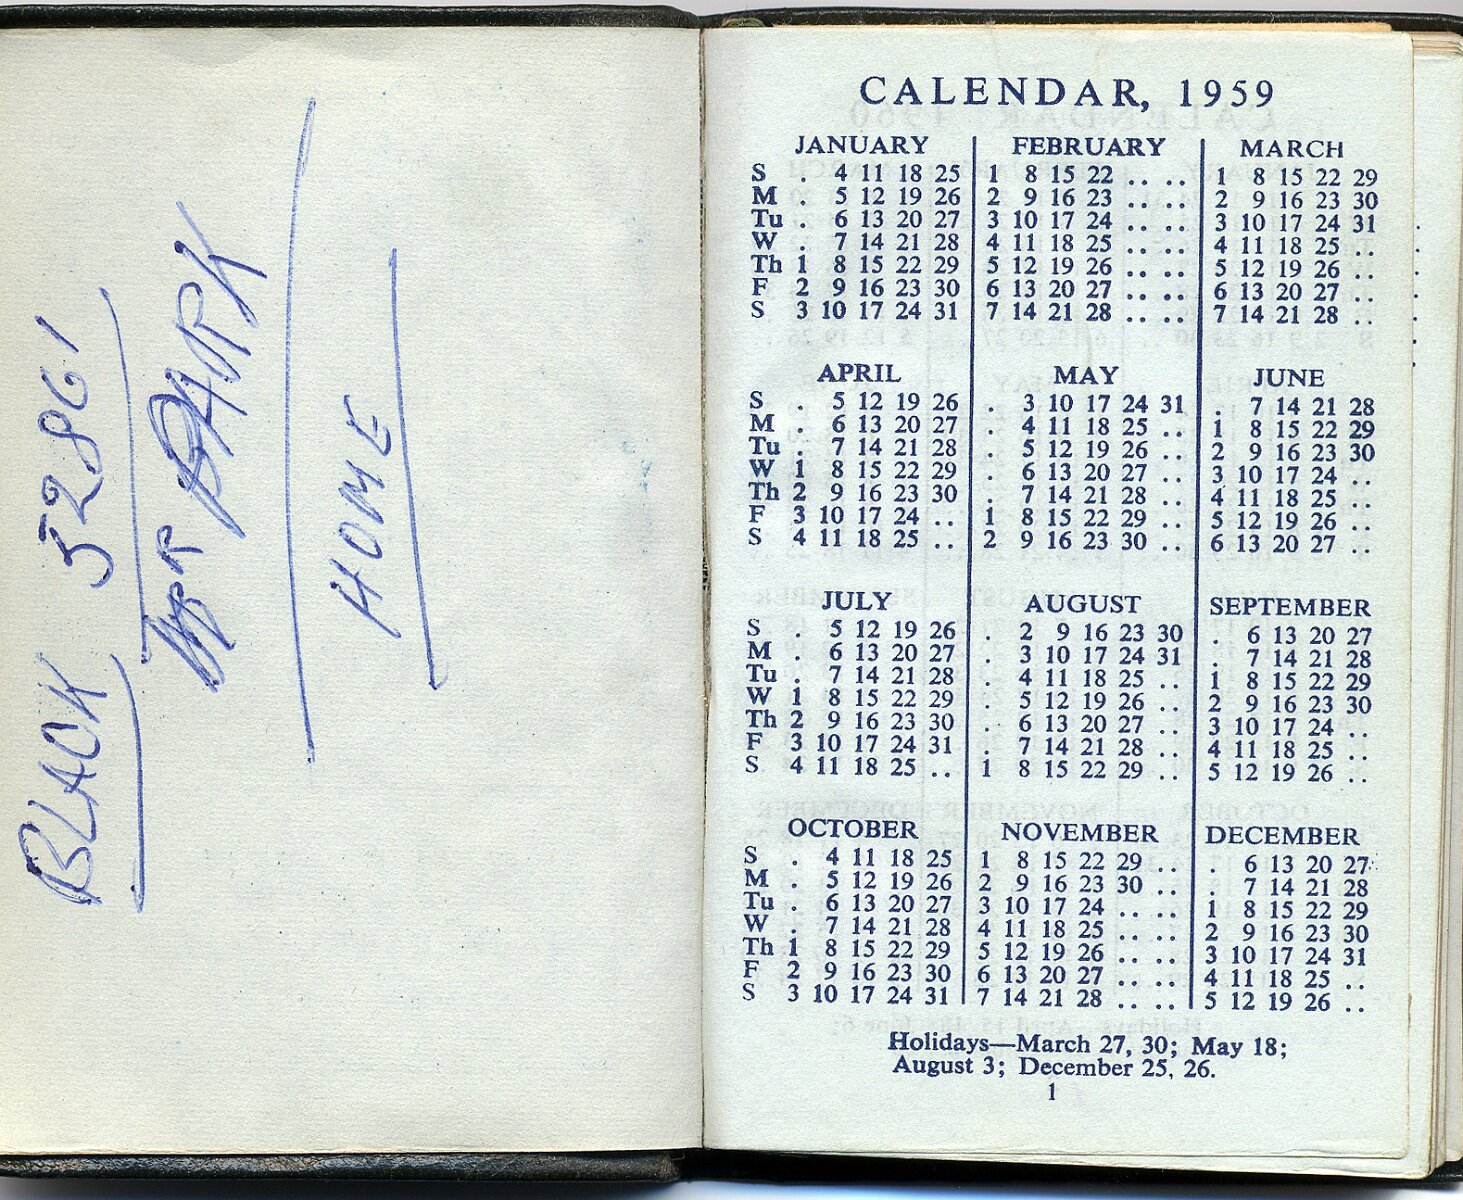 BLACK 52861
PARK
HOME
CALENDAR, 1959
JANUARY FEBRUARY MARCH
S . 4 11 18 25 1 8 15 22 .. .. 1 8 15 22 29
M . 5 12 19 26 2 9 16 23 .. .. 2 9 16 23 30
Tu . 6 13 20 27 3 10 17 24 .. .. 3 10 17 24 31
W . 7 14 21 28 4 11 18 25 .. .. 4 11 18 25 ..
Th 1 8 15 22 29 5 12 19 26 .. .. 5 12 19 26 ..
F 2 9 16 23 30 6 13 20 27 .. .. 6 13 20 27 ..
S 3 10 17 24 31 7 14 21 28 .. .. 7 14 21 28 ..
APRIL MAY JUNE
S . 5 12 19 26 . 3 10 17 24 31 . 7 14 21 28
M . 6 13 20 27 . 4 11 18 25 .. 1 8 15 22 29
Tu . 7 14 21 28 . 5 12 19 26 .. 2 9 16 23 30
W 1 8 15 22 29 . 6 13 20 27 .. 3 10 17 24 ..
Th 2 9 16 23 30 . 7 14 21 28 .. 4 11 18 25 ..
F 3 10 17 24 .. 1 8 15 22 29 .. 5 12 19 26 ..
S 4 11 18 25 .. 2 9 16 23 30 .. 6 13 20 27 ..
JULY AUGUST SEPTEMBER
S . 5 12 19 26 . 2 9 16 23 30 . 6 13 20 27
M . 6 13 20 27 . 3 10 17 24 31 . 7 14 21 28
Tu . 7 14 21 28 . 4 11 18 25 .. 1 8 15 22 29
W 1 8 15 22 29 . 5 12 19 26 .. 2 9 16 23 30
Th 2 9 16 23 30 . 6 13 20 27 .. 3 10 17 24 ..
F 3 10 17 24 31 . 7 14 21 28 .. 4 11 18 25 ..
S 4 11 18 25 .. 1 8 15 22 29 .. 5 12 19 26 ..
OCTOBER NOVEMBER DECEMBER
S . 4 11 18 25 1 8 15 22 29 .. . 6 13 20 27
M . 5 12 19 26 2 9 16 23 30 .. . 7 14 21 28
Tu . 6 13 20 27 3 10 17 24 .. .. 1 8 15 22 29
W . 7 14 21 28 4 11 18 25 .. .. 2 9 16 23 30
Th 1 8 15 22 29 5 12 19 26 .. .. 3 10 17 24 31
F 2 9 16 23 30 6 13 20 27 .. .. 4 11 18 25 ..
S 3 10 17 24 31 7 14 21 28 .. .. 5 12 19 26 ..
Holidays—March 27, 30; May 18;
August 3; December 25, 26.
1